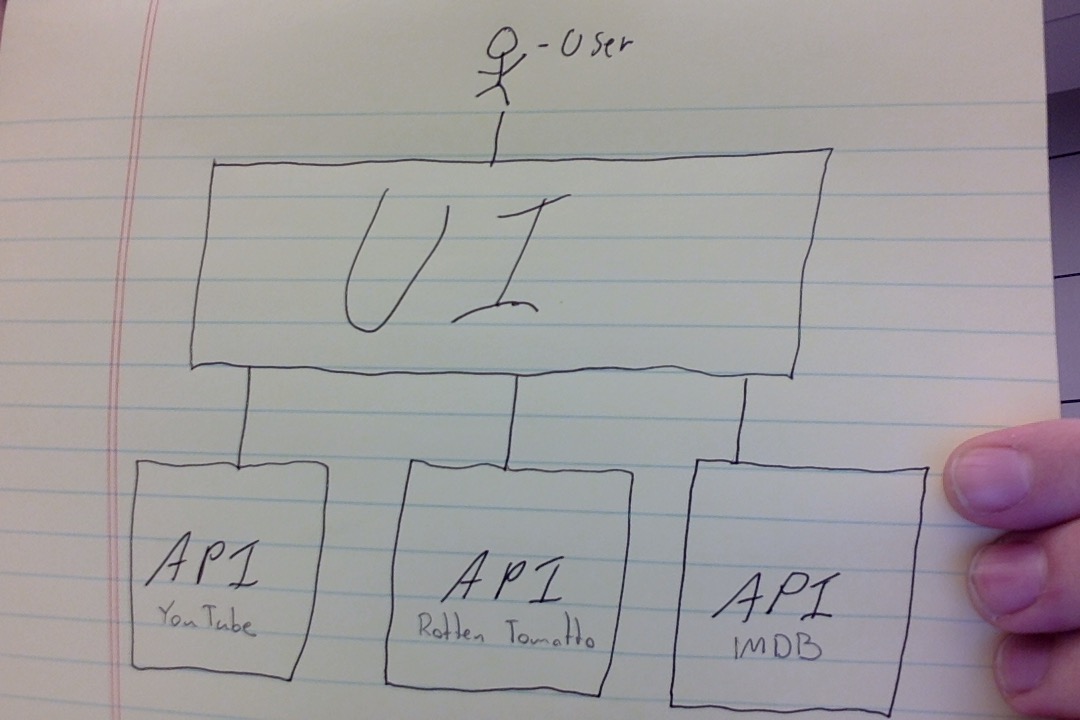 - User
UI
API
YouTube
API
Rotten Tomatto
API
IMDB